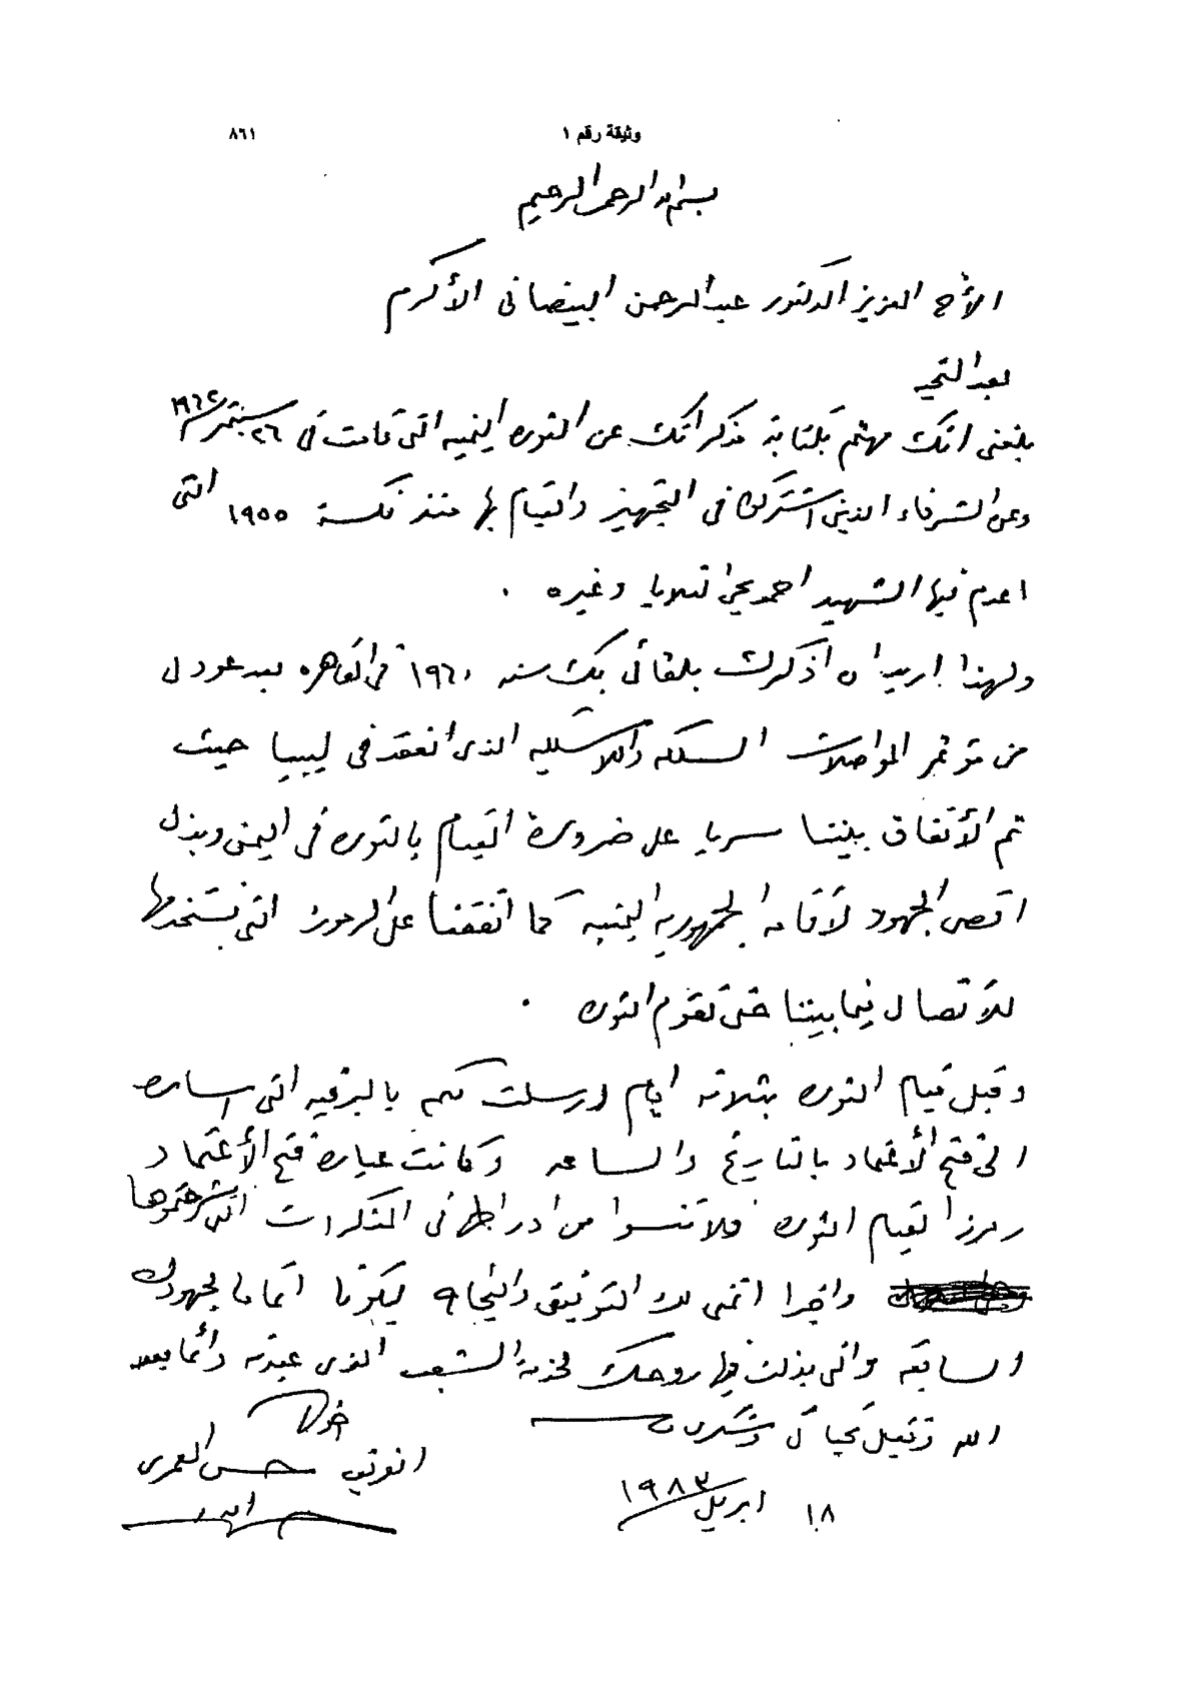 وثيقة رقم ١
٨٦١
بسم الله الرحمن الرحيم
الأخ العزيز الدكتور عبدالرحمن البيضاني الأكرم
بعد التحيه
بلغني انك مهتم بكتابة مذكراتك عن الثوره اليمنيه التي قامت في ٢٦ سبتمبر ١٩٦٢
وعن الشرفاء الذين اشتركوا في التجهيز والقيام بها منذ نكسة ١٩٥٥ التي
اعدم فيها الشهيد احمد يحيى الثلايا وغيره .
ولهذا اريد ان اذكرك بلقائي بك سنه ١٩٦٠ في القاهره بعد عودتي
من مؤتمر المواصلات السلكيه واللاسلكيه الذي انعقد في ليبيا حيث
تم الأتفاق بيننا سريا على ضرورة القيام بالثوره في اليمن وبذل
اقصى الجهود لأقامه الجمهوريه اليمنيه كما اتفقنا على الرموز التي نستخدمها
للأتصال فيما بيننا حتى تقوم الثوره .
وقبل قيام الثوره بثلاثه ايام ارسلت لكم بالبرقيه التي اشاره
الى فتح الأعتماد بالتاريخ والساعه وكانت عبارة فتح الأعتماد
رمزا لقيام الثوره فلا تنسوا من ادراجها في المذكرات
واخيرا اتمنى لك التوفيق والنجاح ليكونا اتماما لجهودك
السابقه والتي بذلت فيها روحك لخدمة الشعب الذي عبدته دائما بعد
الله وتقبل تحياتي وشكري
اخوك
الفريق حسن العمري
١٨ ابريل ١٩٨٣